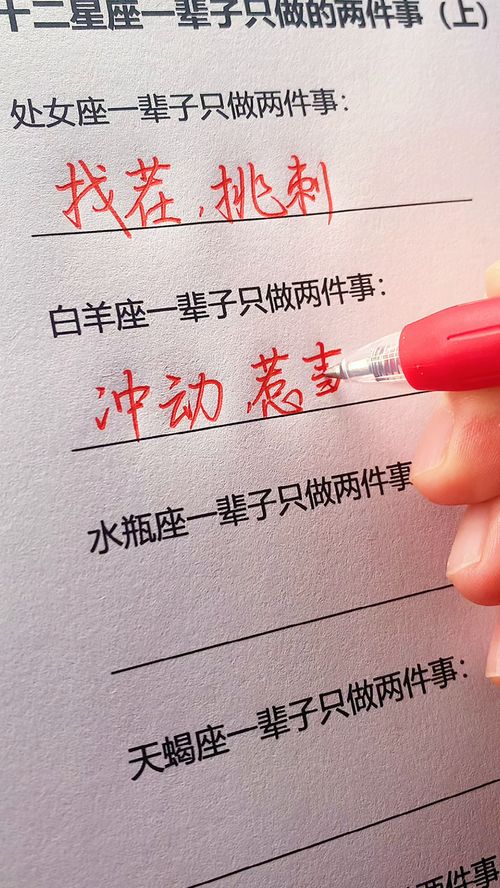 十二星座一辈子只做的两件事（上）
处女座一辈子只做两件事：
找茬，挑刺
白羊座一辈子只做两件事：
冲动，惹事
水瓶座一辈子只做两件事
天蝎座一辈子只做两件事：
件事